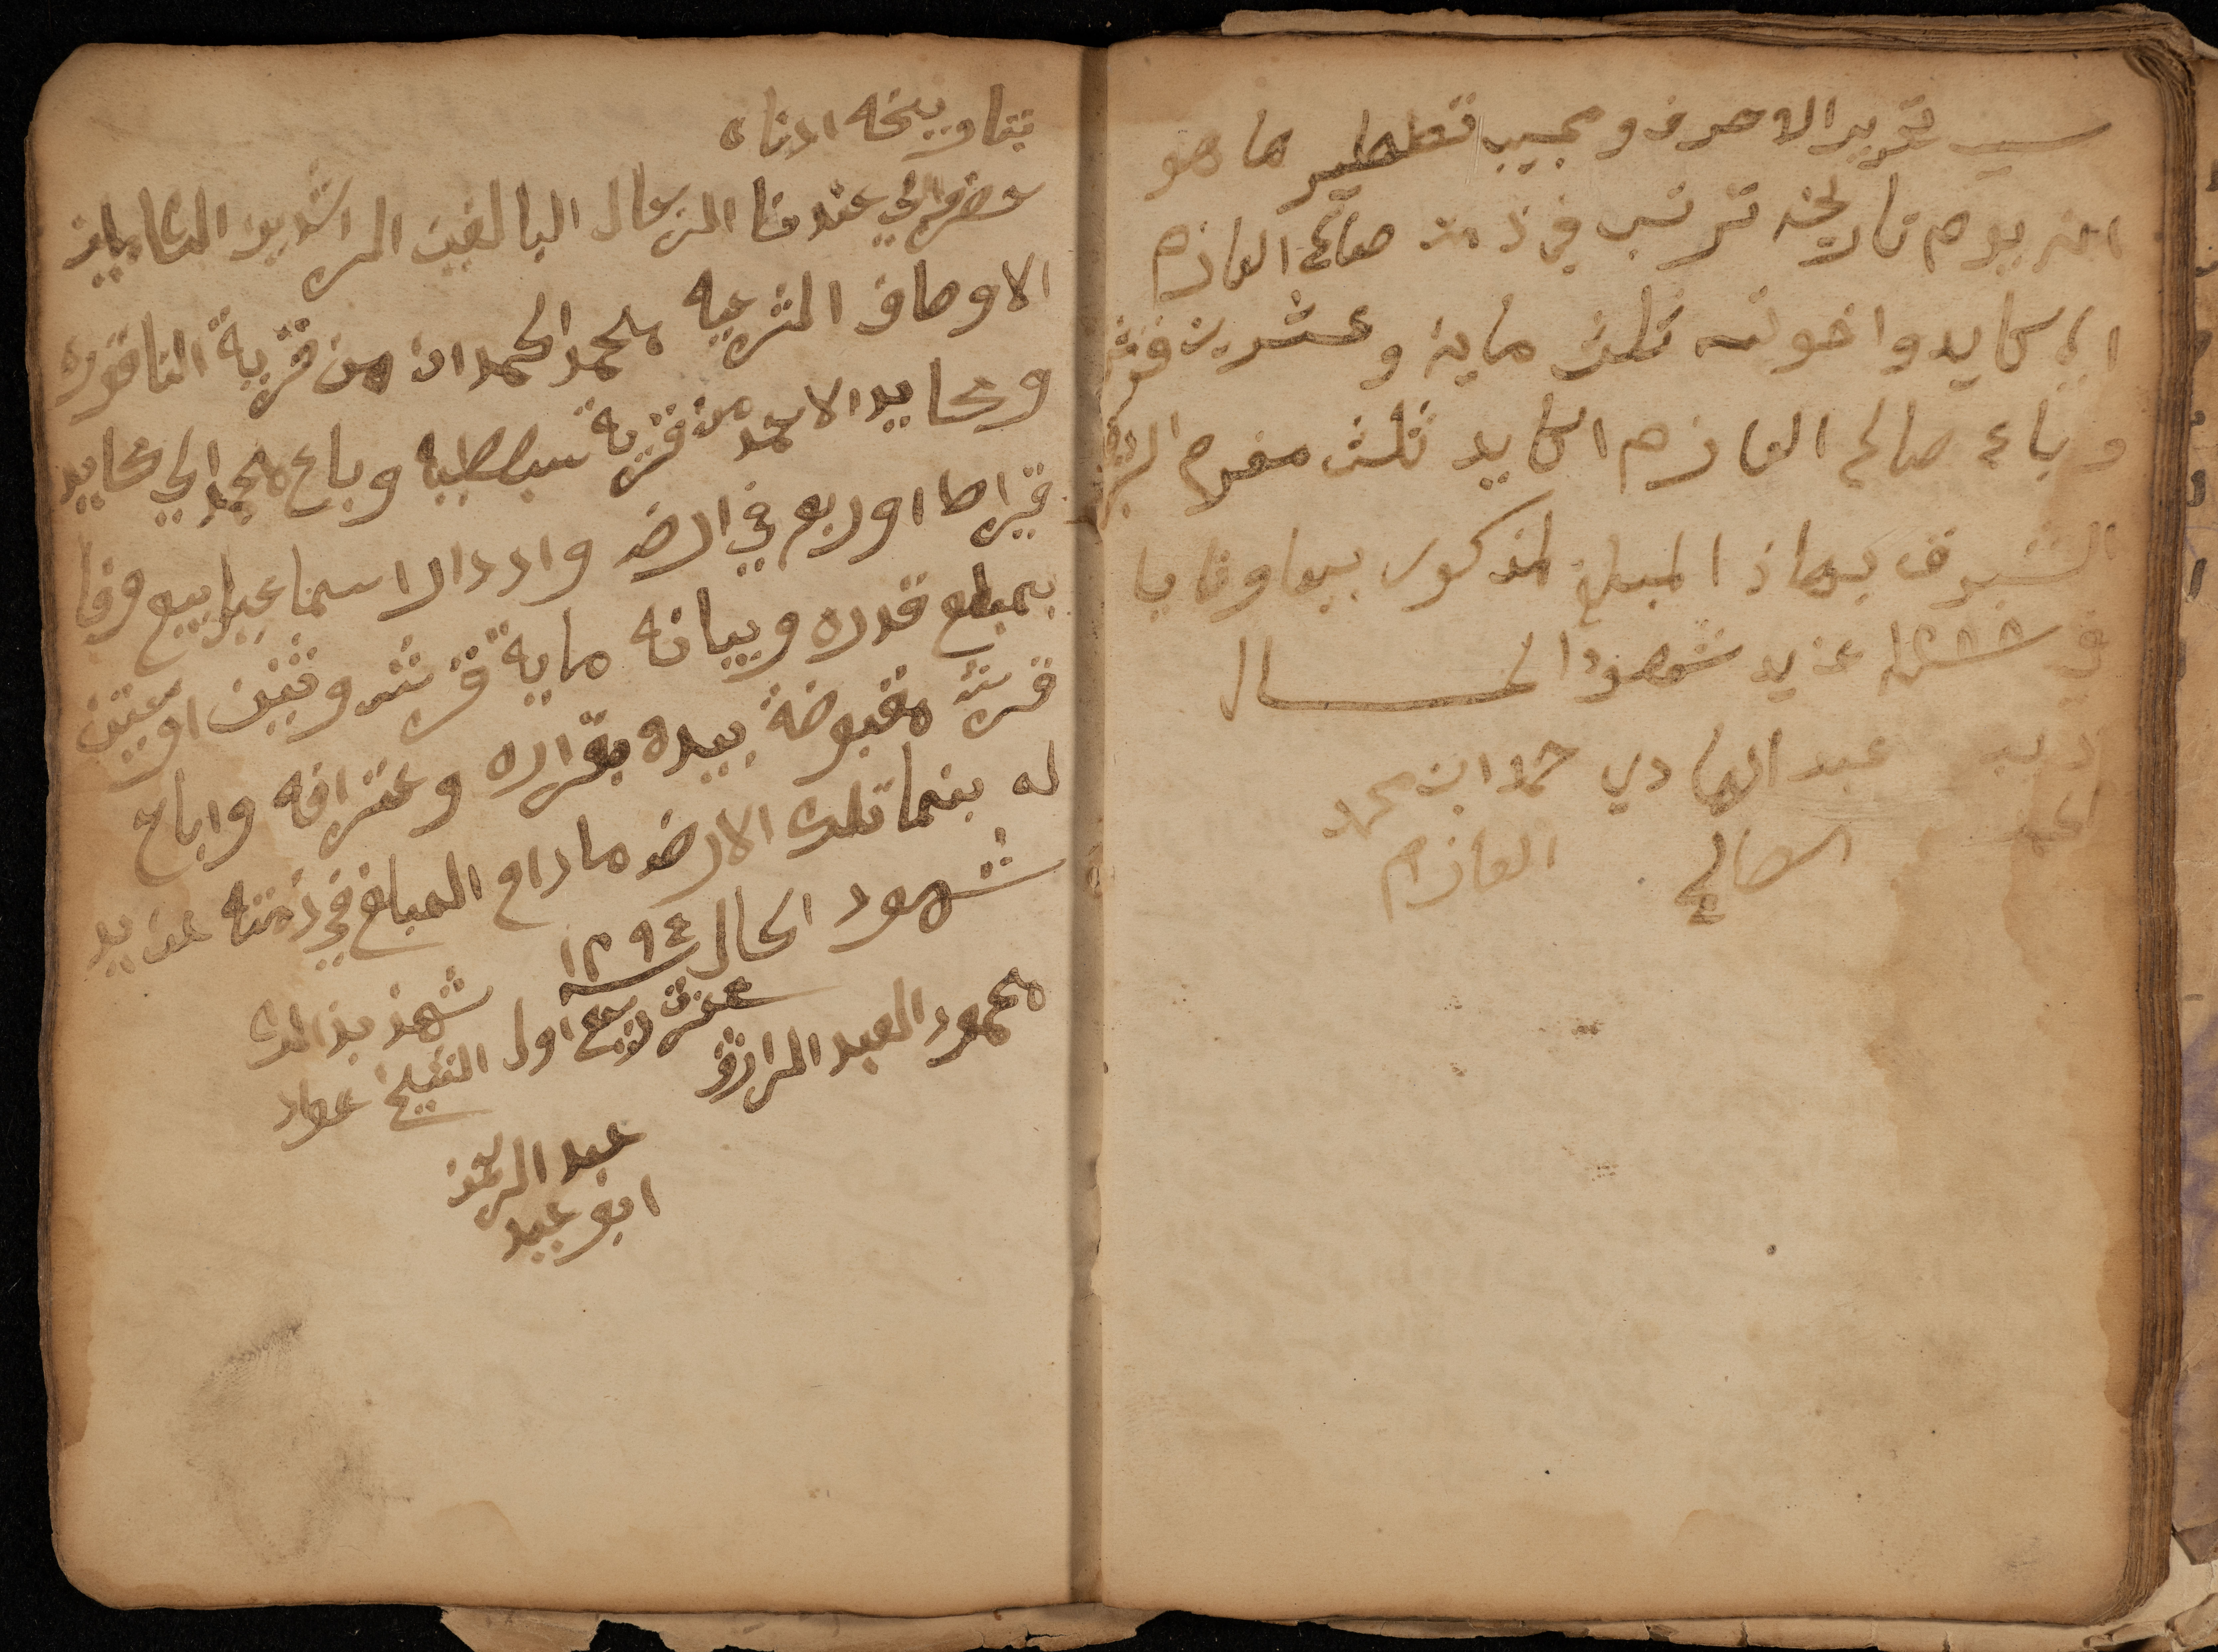 سبب تحرير الاحرف ومجيب تسطير ما هو
انه يوم تاريخه ترتب في ذمة صالح العازم
الى كايد واخوته ثلث ماية وعشرين قرش
وباع صالح العازم الى كايد ثلث مفرح
بهاذ المبلغ المذكور بيعا وفايا
في ١٢٨٨ عن يد شهود الحال
عبد الهادي حمد ابن محمد
الصالح العازم
بتاويخه ادناه
حضر الي عندنا الرجال البالغين الراشدين الكاملين
الاوصاف الشرعيه محمد الحمدان من قرية الناقوره
وكايد الاحمد من قرية سبسطيه وباع محمد الي كايد
قيراط اوربع في ارض واد دار اسماعيل بيع وفا
بمبلغ قدره وبيانه ماية قرش وثنين اوربعين
قرش مقبوضة بيده بقراره وعترافه واباح
له بنما تلك الارض ما دام المبلغ في ذمته عن يد
شهود الحال سنه ١٢٩٤
عشرة ربيع اول
محمود العبد الرازق
شهد بذالك
الشيخ عواد
عبد الرحمن
ابو عبيد